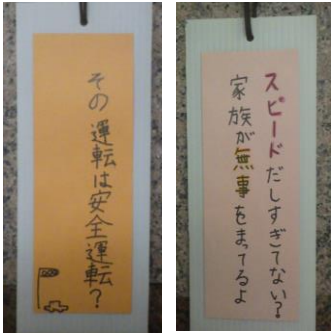 その運転は安全運転?
スピードだしすぎてない?
家族が無事をまってるよ